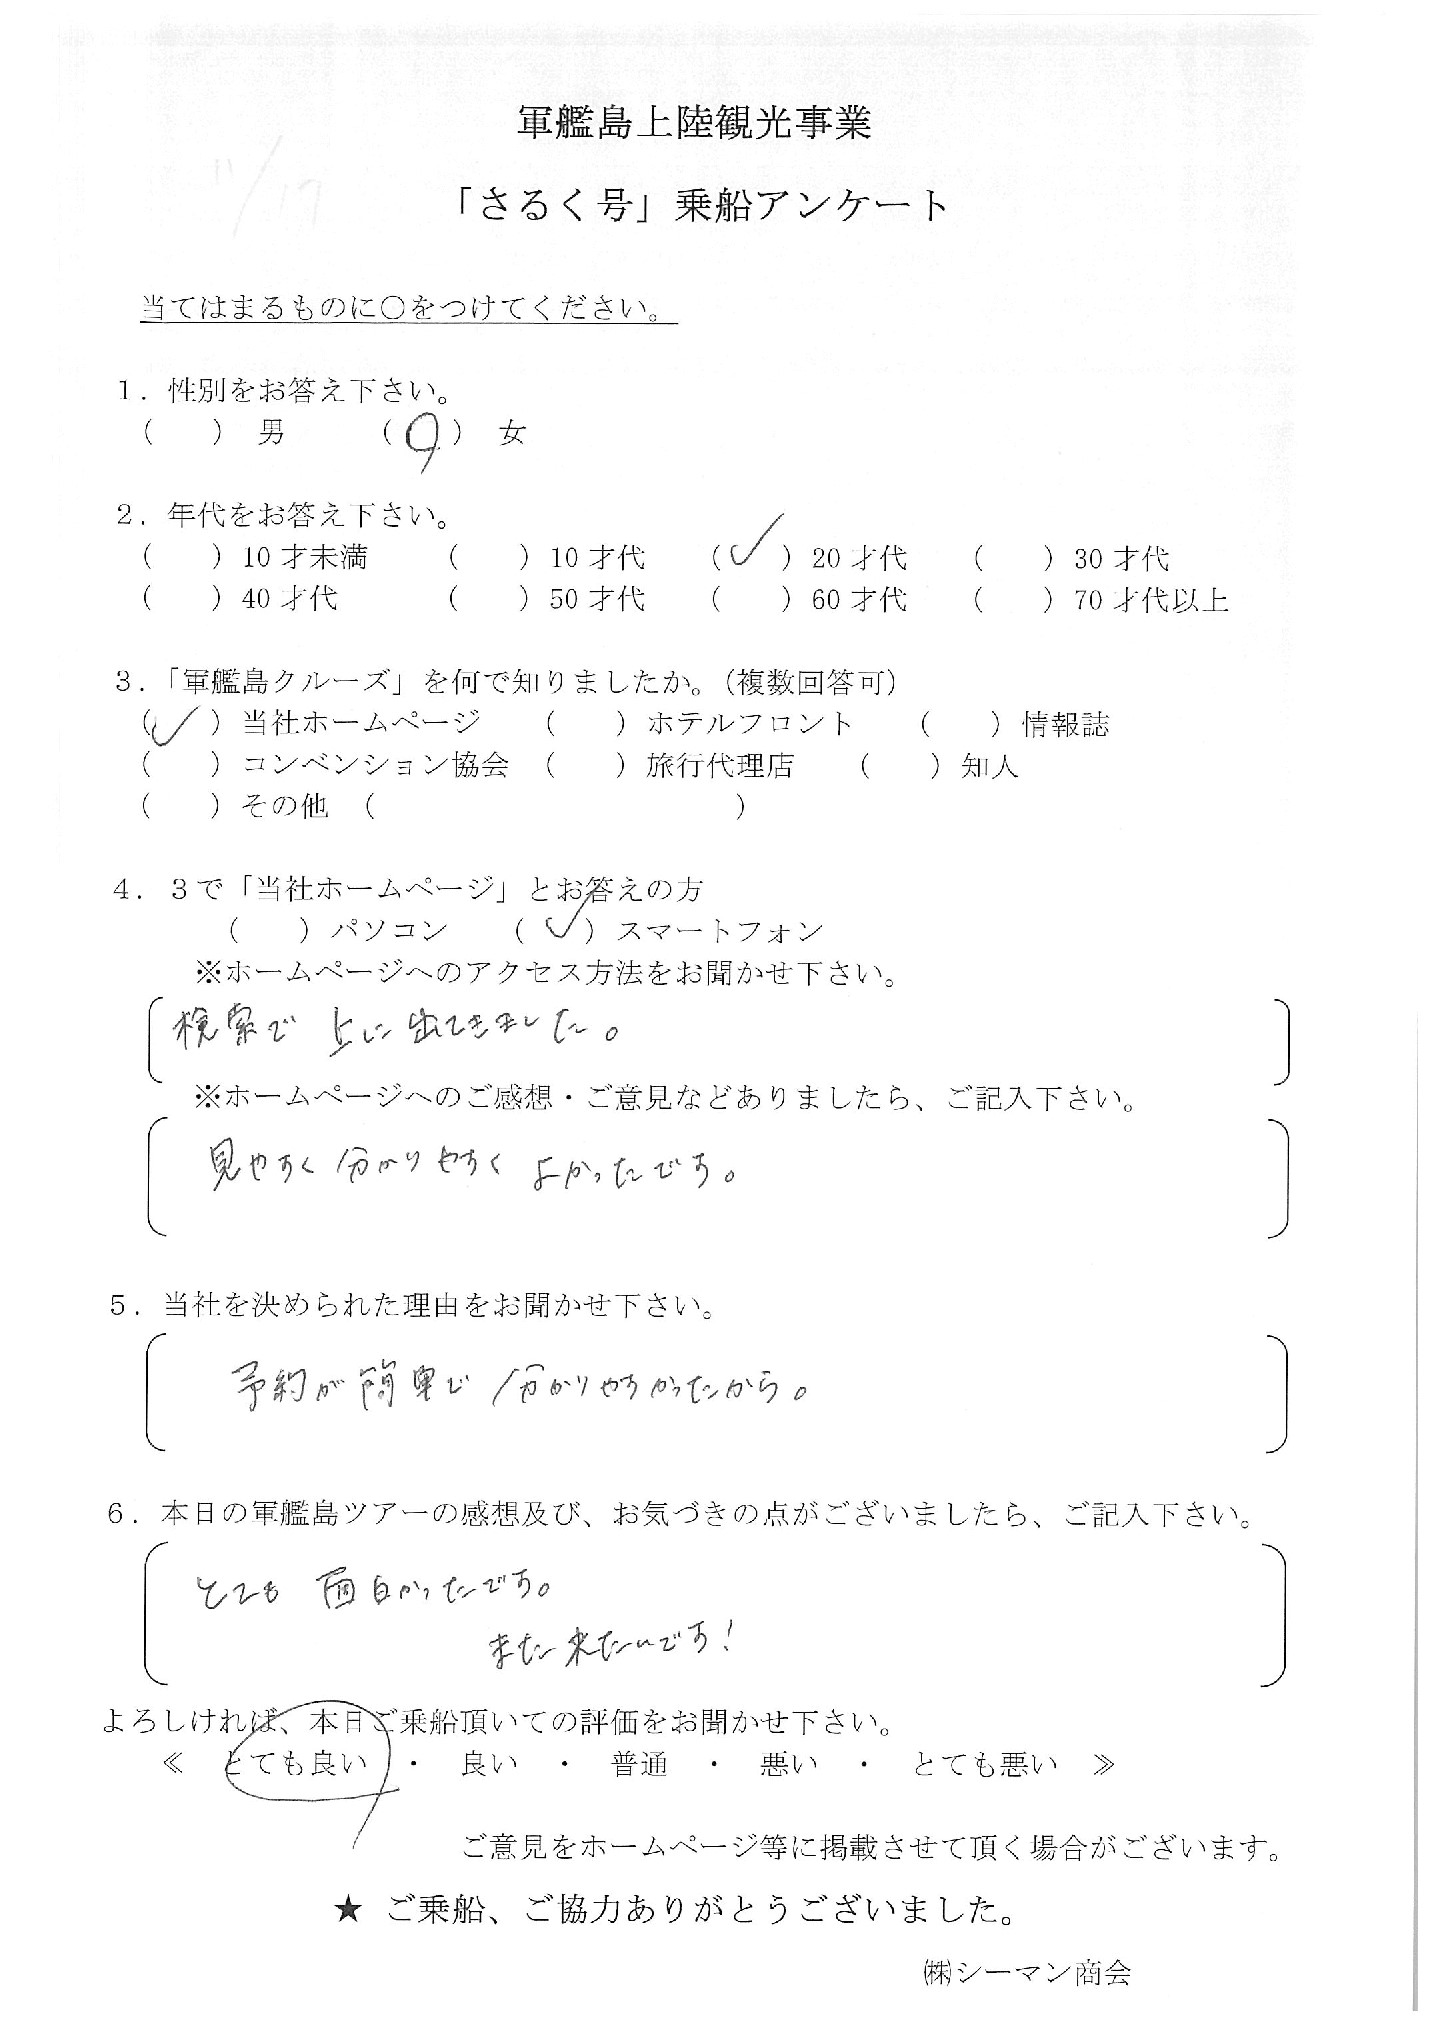 11/17
軍艦島上陸観光事業
「さるく号」乗船アンケート
当てはまるものに○をつけてください。
１．性別をお答え下さい。
（　　） 男　　（○） 女
２．年代をお答え下さい。
（　　）10 才未満　（　　）10 才代　（✓）20 才代　（　　）30 才代
（　　）40 才代　（　　）50 才代　（　　）60 才代　（　　）70 才代以上
３．「軍艦島クルーズ」を何で知りましたか。（複数回答可）
（✓）当社ホームページ　（　　）ホテルフロント　（　　）情報誌
（　　）コンベンション協会　（　　）旅行代理店　（　　）知人
（　　）その他　（　　　　　　　　　　）
４．３で「当社ホームページ」とお答えの方
（　　）パソコン　（✓）スマートフォン
※ホームページへのアクセス方法をお聞かせ下さい。
検索で 上に出てきました。
※ホームページへのご感想・ご意見などありましたら、ご記入下さい。
見やすく 分かりやすく よかったです。
５．当社を決められた理由をお聞かせ下さい。
予約が簡単で 分かりやすかったから。
６．本日の軍艦島ツアーの感想及び、お気づきの点がございましたら、ご記入下さい。
とても 面白かったです。
また来たいです！
よろしければ、本日ご乗船頂いての評価をお聞かせ下さい。
≪　とても良い　・　良い　・　普通　・　悪い　・　とても悪い　≫
ご意見をホームページ等に掲載させて頂く場合がございます。
★ ご乗船、ご協力ありがとうございました。
㈱シーマン商会